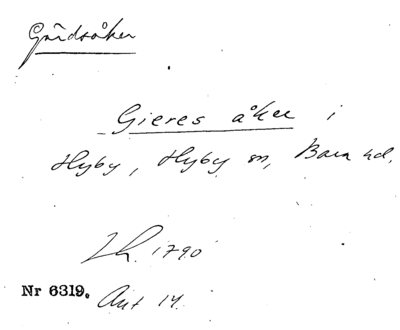 Gärdsåker
Gieres åker i
Hyby, Hyby sn, Bara hd.
Lh. 1790
Nr 6319. Akt 14.